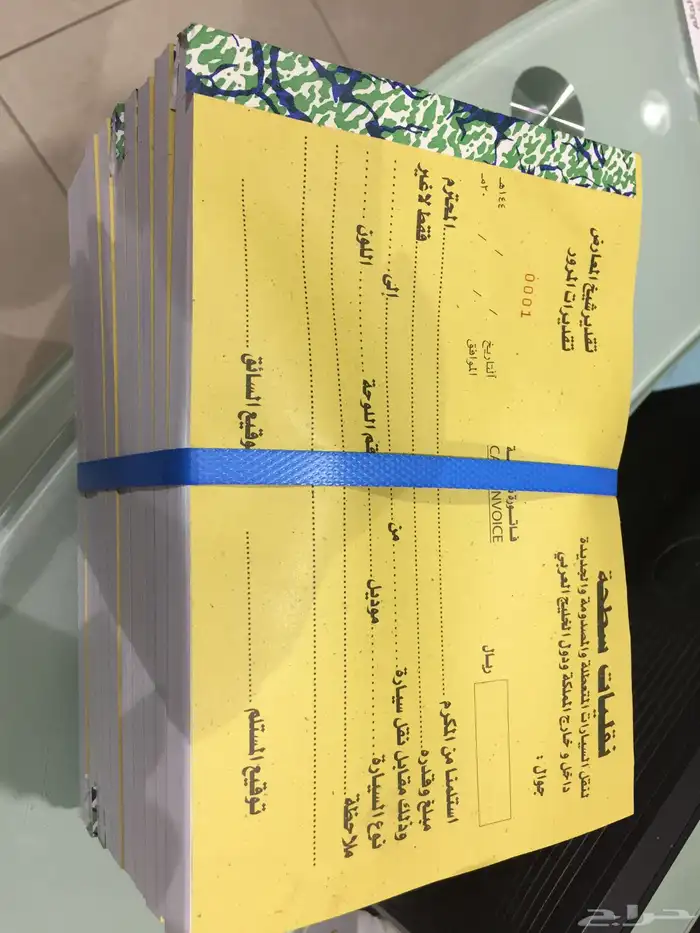 نقليات سطحة
لنقل السيارات المتعطلة والمصدومة والجديدة
داخل و خارج المملكة ودول الخليج العربي
جوال :
تقدير شيخ المعارض
تقديرات المرور
0001
فاتورة
INVOICE
ريال
التاريخ / / ١٤٤هـ
الموافق / / ٢٠م
استلمنا من المكرم المحترم
مبلغ وقدره فقط لاغير
وذلك مقابل نقل سيارة من إلى
نوع السيارة موديل رقم اللوحة اللون
ملاحظة
توقيع المستلم توقيع السائق
حراج